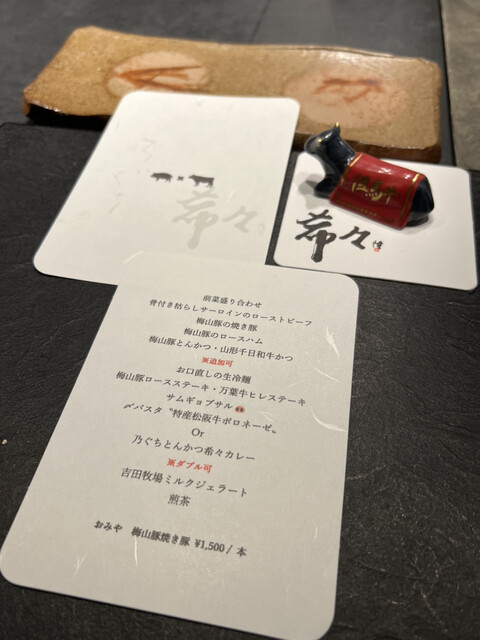 希々
希々
前菜盛り合わせ
骨付き枯らしサーロインのローストビーフ
梅山豚の焼き豚
梅山豚のロースハム
梅山豚とんかつ・山形千日和牛かつ
※追加可
お口直しの生冷麺
梅山豚ロースステーキ・万葉牛ヒレステーキ
サムギョプサル
〆パスタ〝特産松阪牛ボロネーゼ〟
Or
乃ぐちとんかつ希々カレー
※ダブル可
吉田牧場ミルクジェラート
煎茶
おみや 梅山豚焼き豚 ¥1,500 / 本